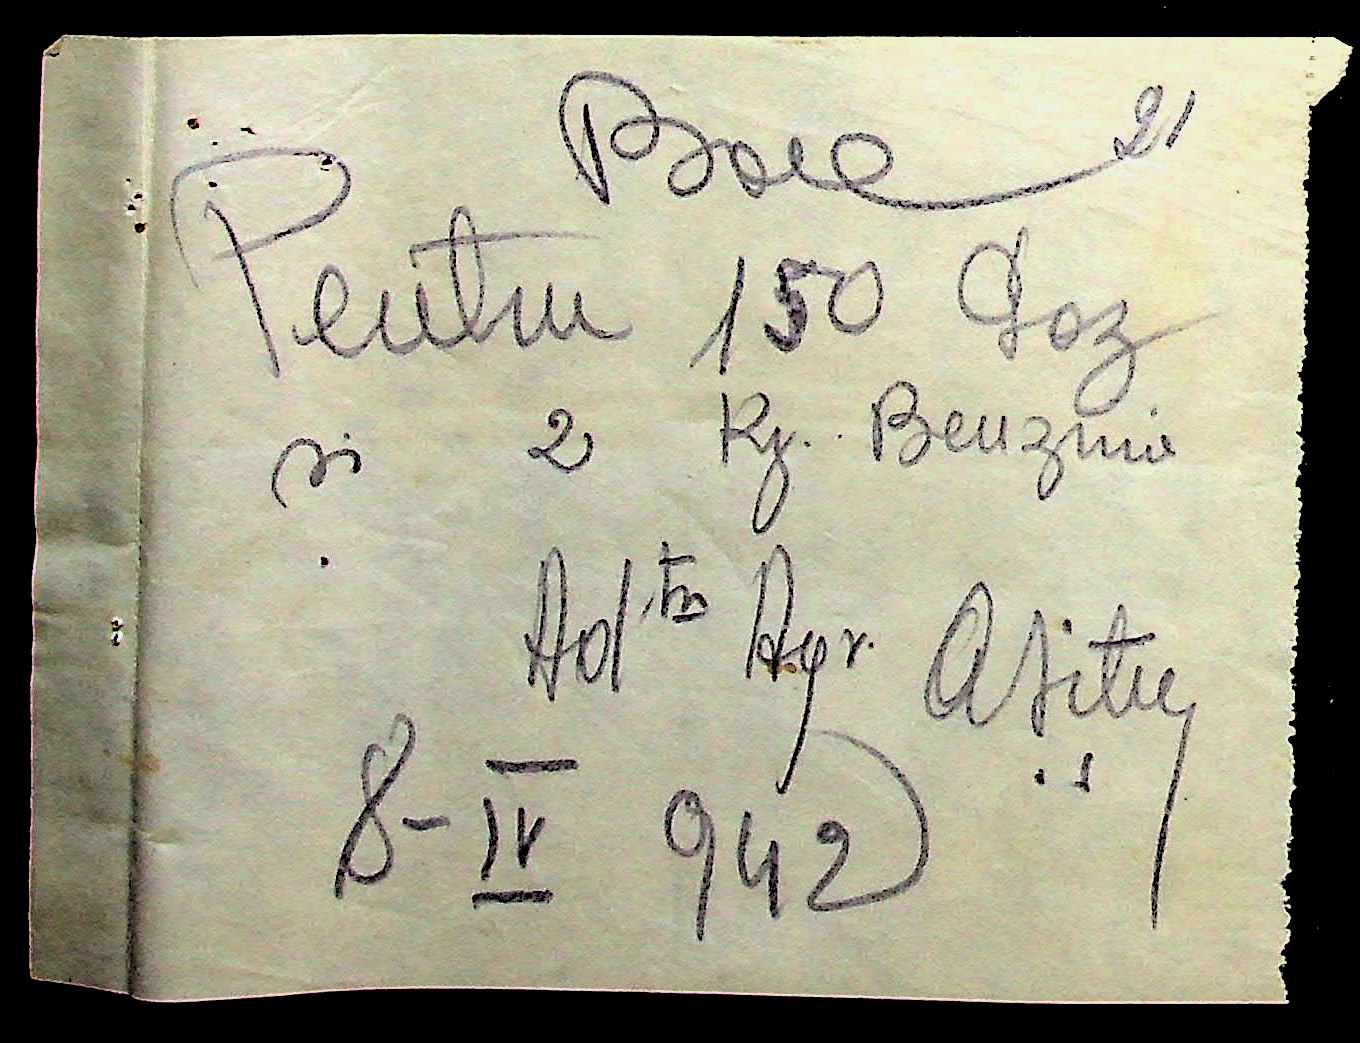 Bon 21
Pentru 150 Gaz
si 2 Kg. Benzina
Ad.tia Agr.
8-IV 942